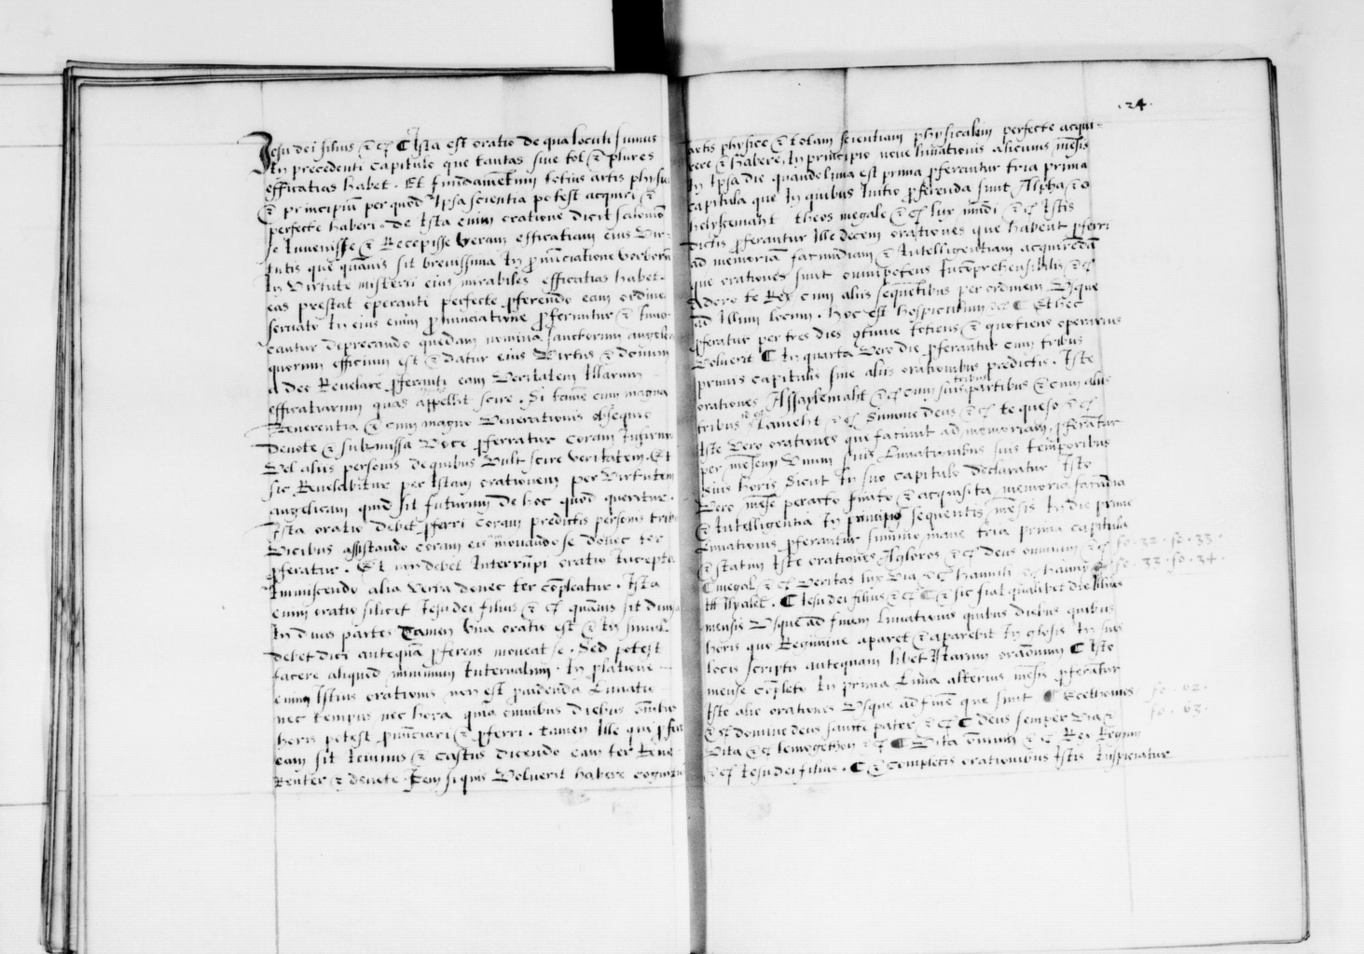 Jesu dei filius & c̄ ¶ Ista est oratio de qua locuti sumus
In precedenti capitulo que tantas sive tot & plures
efficatias habet. Et fundamētum totius artis physice
& principiū per quod Ipsa scientia potest acquiri &
perfecte haberi. De Ista enim oratione dicit salomon
se Invenisse & Recepisse veram efficatiam eius Vir-
tutis que quāvis sit brevissima In pnūciatione verborū
In Virtute misterii eius mirabiles efficatias habet.
eas prestat operanti perfecte pferendo eam ordine
servato In eius enim pronunciatione pferuntur &
cantur deprecando quedam nomina sanctorum angelo
quorum officium est & datur eius Virtus & donum
a deo Revelare pferenti eam Veritatem Illarum
efficatiarum quas appellit scire. Si tamē cum magna
Reverentia & cum magno Venerationis obsequio
Devote & submissa Voce pferratur coram Infirmo
Vel aliis personis de quibus Vult scire veritatem. Et
sic Revelabitur per Istam orationem per Virtutem
angelicam quid sit futurum de hoc quod queritur.
Ista oratio debet pferri coram predictis personis tribus
Vicibus assistando coram eis movando se donec ter
pferatur. Et non debet Interrūpi oratio Incepta
Inmiscendo alia Verba donec ter cōpleatur. Ista
enim oratio silicet Jesu dei filius & c̄ quāvis sit divisa
In duas partes Tamen Una oratio est & In simul
debet dici antequā pferens moveat se. Sed potest
facere aliquod minimum Intervalum. In platione
enim Istius orationis non est Lunatio
nec tempus nec hora quia omnibus diebus ōnibus
horis potest pnunciari & pferri. tamen Ille qui pfert
eam sit Ieiunus & castus dicendo eam ter Reve-
Renter & devote. Item siquis Voluerit habere cognitionē
.24.
artis physice & totam scientiam physicalem perfecte acqui-
rere & habere, In principio nove lunationis alicuius mēsis
In Ipsa die quando luna est prima pferantur tria prima
capitula que In quibus Initio pferenda sunt Alpha & o
helyscemaht theos megale & c̄ lux mūdi & c̄ Istis
dictis pferantur Ille decem orationes que habent pferri
ad memoriā facundiam & Intelligentiam acquirēdā
que orationes sunt omnipotens Incōprehensibilis & c̄
Adoro te Rex cum aliis sequētibus per ordinem Usque
ad Illum locum. Hoc est hospicium & c̄ ¶ Et hec
pferatur per tres dies 9tinue toticus & quotiens operarius
Voluerit ¶ In quarta Vero die pferantur cum tribus
primis capitulis sine aliis orationibus predictis. Iste
orationes Assaylemaht & c̄ cum suis tribus partibus & cum aliis
tribus Lameht & c̄ Summe deus & c̄ te queso & c̄
Iste Vero orationes que faciunt ad memoriam pferātur
per mēsem Unum suis Lunationibus suis temporibus
eius horis Sicut In suo capitulo declaratur Isto
Vero mēse peracto finito & acquisita memoria facūdia
& Intelligentia In principio sequentis mēsis In die prime
Lunationis pferantur summo mane tria prima capitula
& statim Iste orationes Agloros & c̄ deus omnium & c̄
¶ megal & c̄ Veritas lux Via & c̄ &
Hyabel. ¶ Jesu dei filius & c̄ ¶ & sic fiat qualibet die Illius
mensis Usque ad finem lunationis quibus diebus quibus
horis quo Regimine aparet & aparebit In glosis In suis
locis scriptis antequam libet Istarum orationum ¶ Isto
mense cōpleto In prima Luna alterius mēsis pferantur
Iste alie orationes Usque ad finē que sunt ¶
& c̄ domine deus sancte pater & c̄ ¶ deus semper Via &
Vita & c̄ lemogethon & c̄ ¶ Vita ōnium & c̄ Rex Regum
& c̄ Jesu dei filius. ¶ & completis orationibus Istis Inspiciatur
fo. 32. fo. 33.
fo. 33. fo. 34.
fo. 62.
fo. 63.